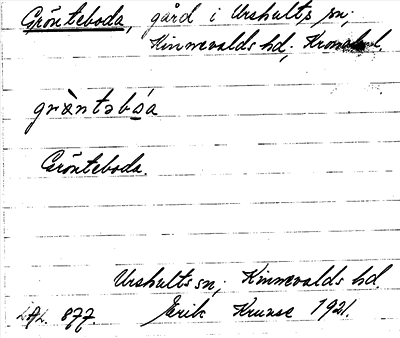 Grönteboda, gård i Urshults sn;
Kinnevalds hd; Kronob. l.
græ̀ntəbo̲a
Grönteboda.
Urshults sn; Kinnevalds hd
877. Erik Kruuse 1921.